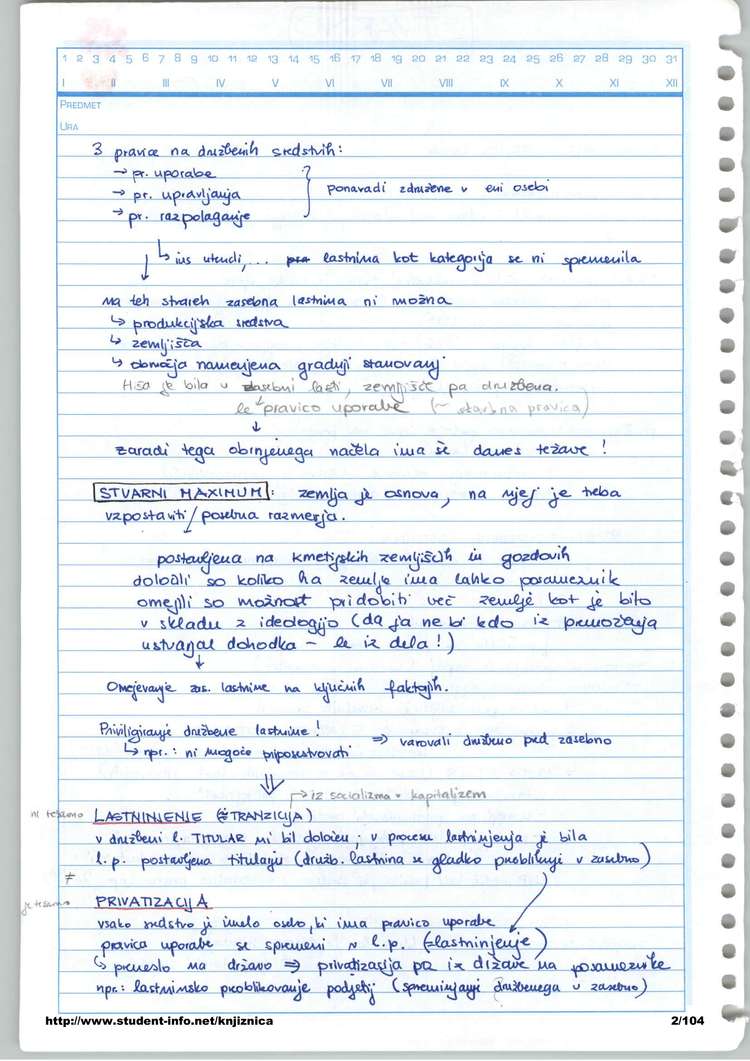 1 2 3 4 5 6 7 8 9 10 11 12 13 14 15 16 17 18 19 20 21 22 23 24 25 26 27 28 29 30 31
I II III IV V VI VII VIII IX X XI XII
PREDMET
URA
3 pravice na družbenih sredstvih:
→ pr. uporabe
→ pr. upravljanja
→ pr. razpolaganje
ponavadi združene v eni osebi
↳ ius utendi,... lastnina kot kategorija se ni spremenila
Na teh stvareh zasebna lastnina ni možna
↳ produkcijska sredstva
↳ zemljišča
↳ območja namenjena gradnji stanovanj
Hiša je bila v zasebni lasti, zemljišče pa družbena.
le pravico uporabe (~ stavbna pravica)
↓
zaradi tega obrnjenega načela ima še danes težave!
STVARNI MAXIMUM: zemlja je osnova, na njej je treba
vzpostaviti posebna razmerja.
postavljena na kmetijskih zemljiščih in gozdovih
določili so koliko ha zemlje ima lahko posameznik
omejili so možnost pridobiti več zemlje kot je bilo
v skladu z ideologijo (da ja ne bi kdo iz premoženja
ustvarjal dohodka – le iz dela!)
↓
Omejevanje zas. lastnine na ključnih faktorjih.
Priviligiranje družbene lastnine!
↳ npr.: ni mogoče priposestvovati ⇒ varovali družbeno pred zasebno
⇓
→ iz socializma v kapitalizem
ni tesamo LASTNINJENJE (≈ TRANZICIJA)
v družbeni l. TITULAR ni bil določen; v procesu lastninjenja je bila
l.p. postavljena titularju (družb. lastnina se gladko preoblikuje v zasebno)
≠
je tesamo PRIVATIZACIJA
vsako sredstvo je imelo osebo, ki ima pravico uporabe
pravica uporabe se spremeni v l.p. (=lastninjenje)
↳ preneslo na državo ⇒ privatizacija pa iz države na posameznike
npr.: lastninsko preoblikovanje podjetij (spreminjanje družbenega v zasebno)
http://www.student-info.net/knjiznica
2/104